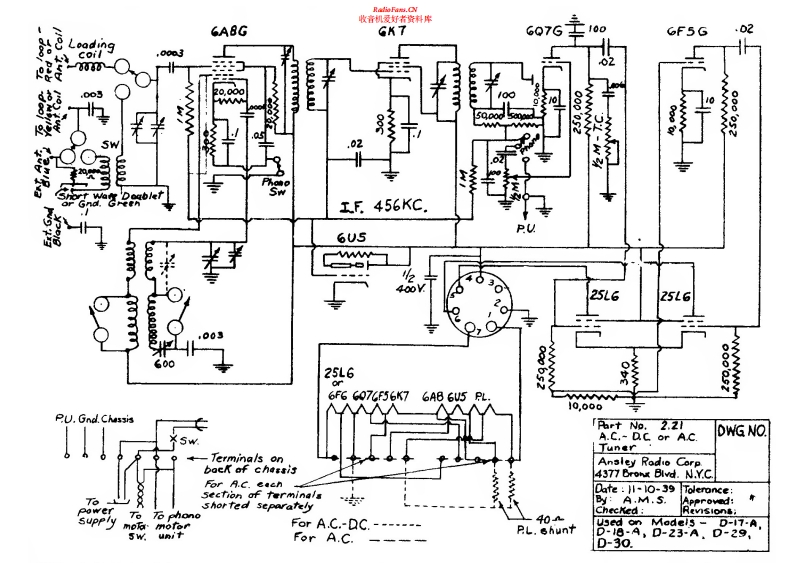 RadioFans.CN
收音机爱好者资料库
Loading coil
To loop - Red or Ant. Coil
To loop - Yellow or Ant Coil
Ext. Ant. Blue
Ext. Gnd Black
Short Wave Doublet or Gnd. Green
SW
20,000
.003
.1
.0003
6A8G
1 M
300
20,000
.1
.05
20,000
Phono Sw
6K7
300
.1
.02
I.F. 456KC.
6Q7G
100
50,000
500,000
10,000
10
.02
100
1 M
½ M
Phono
P.U.
100
.02
250,000
½ M - T.C.
6F5G
10,000
10
250,000
.02
6U5
½ 400V.
1
2
3
4
5
6
7
25L6
25L6
250,000
340
250,000
10,000
600
.003
25L6 or 6F6 6Q7 6F5 6K7 6A8 6U5 P.L.
P.U. Gnd. Chassis
Sw.
Terminals on back of chassis
For A.C. each section of terminals shorted separately
To power supply
To motor sw.
To phono motor unit
40Ω P.L. shunt
For A.C.-D.C. ------
For A.C. ———
Part No. 2.21
A.C.-D.C. or A.C. Tuner
DWG. NO.
Ansley Radio Corp.
4377 Bronx Blvd. N.Y.C.
Date : 11-10-39 Tolerance:
By : A.M.S. Approved:
Checked: Revisions:
Used on Models - D-17-A,
D-18-A, D-23-A, D-29,
D-30.